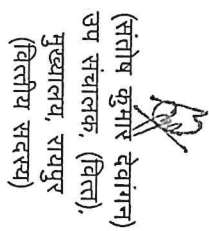 (संतोष कुमार देवांगन)
उप संचालक, (वित्त).
मुख्यालय, रायपुर
(वित्तीय सदस्य)